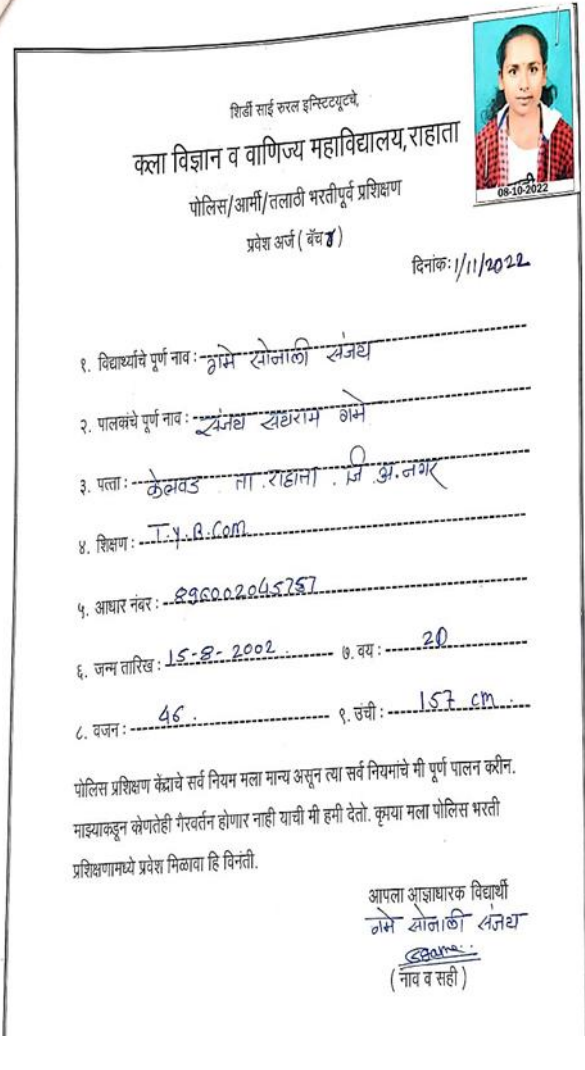 शिर्डी साई रुरल इन्स्टिटयूटचे,
कला विज्ञान व वाणिज्य महाविद्यालय,राहाता
पोलिस/आर्मी/तलाठी भरतीपूर्व प्रशिक्षण
08-10-2022
प्रवेश अर्ज ( बॅच )
दिनांक: 1/11/2022
१. विद्यार्थ्याचे पूर्ण नाव : गमे सोनाली संजय
२. पालकंचे पूर्ण नाव : संजय सखराम गमे
३. पत्ता : केलवड ता. राहाता . जि अ.नगर
४. शिक्षण : T.Y.B.COM
५. आधार नंबर : 896002045757
६. जन्म तारिख : 15-8-2002 . ७. वय : 20
८. वजन : 46 . ९. उंची : 157 cm .
पोलिस प्रशिक्षण केंद्राचे सर्व नियम मला मान्य असून त्या सर्व नियमांचे मी पूर्ण पालन करीन.
माझ्याकडून कोणतेही गैरवर्तन होणार नाही याची मी हमी देतो. कृपया मला पोलिस भरती
प्रशिक्षणामध्ये प्रवेश मिळावा हि विनंती.
आपला आज्ञाधारक विद्यार्थी
गमे सोनाली संजय
( नाव व सही )